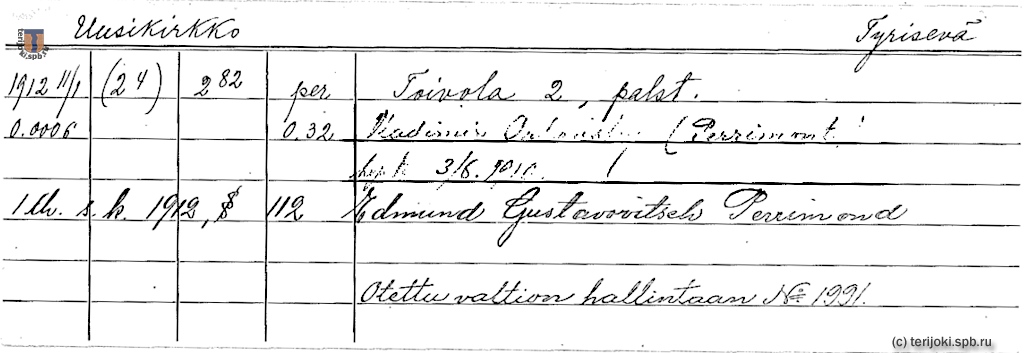 Uusikirkko Tyrisevä
1912 11/1 (2 4) 2 82 per Toivola 2, palst.
0.0006 0.32 Vladimir (Perrimont
3/6. 1910.
1 s. k. 1912, § 112 Edmund Gustavovitsch Perrimond
Otettu valtion hallintaan No 1991.
terijoki.spb.ru
(c) terijoki.spb.ru